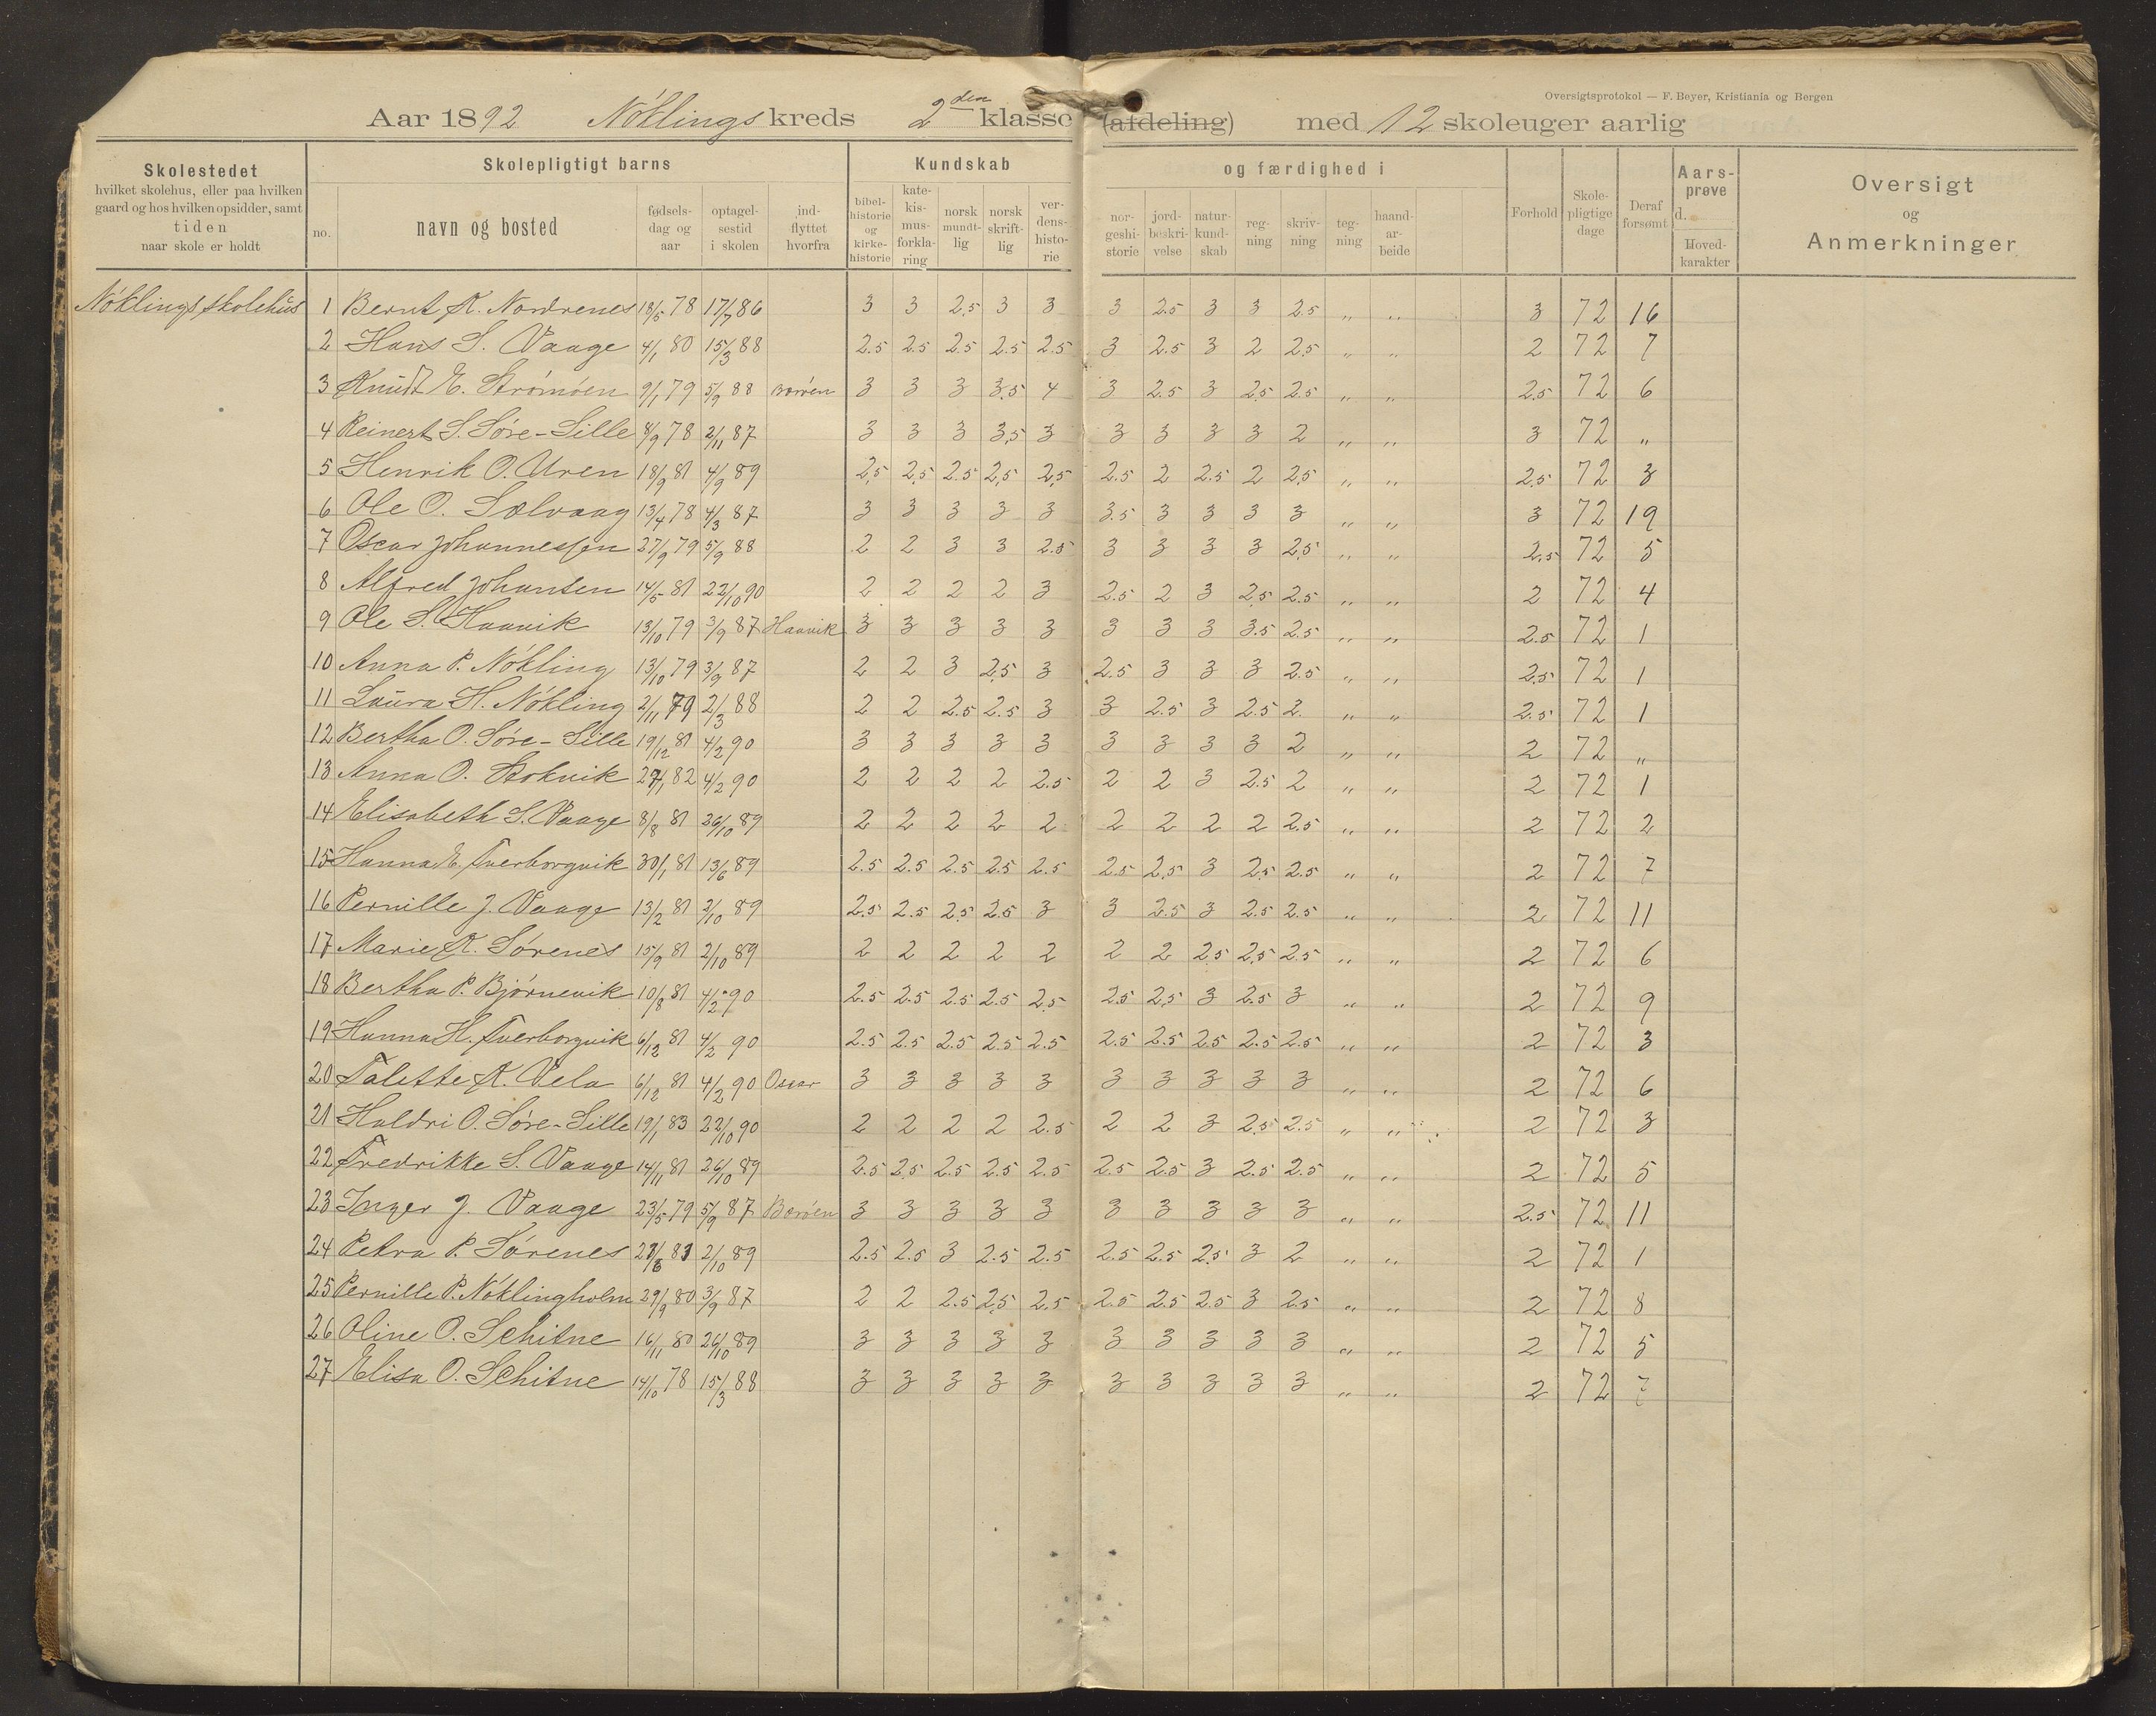 Oversigtsprotokol — F. Beyer, Kristiania og Bergen
Aar 1892 Nöklings kreds 2den klasse (afdeling) med 12 skoleuger aarlig
Skolestedet
hvilket skolehus, eller paa hvilken
gaard og hos hvilken opsidder, samt
tiden
naar skole er holdt
Skolepligtigt barns
no.
navn og bosted
fødsels-
dag og
aar
optagel-
sestid
i skolen
ind-
flyttet
hvorfra
Kundskab
bibel-
historie
og
kirke-
historie
kate-
kis-
mus-
forkla-
ring
norsk
mundt-
lig
norsk
skrift-
lig
ver-
dens-
histo-
rie
og færdighed i
nor-
geshi-
storie
jord-
beskri-
velse
natur-
kund-
skab
reg-
ning
skriv-
ning
teg-
ning
haand-
ar-
beide
Forhold
Skole-
pligtige
dage
Deraf
forsømt
Aars-
prøve
d.
Hoved-
karakter
Oversigt
og
Anmerkninger
Nöklings skolehus 1 Bernt K. Nordrenes 18/5 78 17/7 86 3 3 2.5 3 3 3 2.5 3 3 2.5 „ „ 3 72 16
2 Hans S. Vaage 4/1 80 15/3 88 2.5 2.5 2.5 2.5 2.5 3 2.5 3 2 2.5 „ „ 2 72 7
3 Knudt E. Strömöen 9/1 79 5/9 88 Boröen 3 3 3 3.5 4 3 2.5 3 2.5 2.5 „ „ 2.5 72 6
4 Reinert S. Söre-Sille 8/9 78 2/11 87 3 3 3 3.5 3 3 3 3 3 2 „ „ 3 72 „
5 Henrik O. Uren 18/9 81 4/9 89 2.5 2.5 2.5 2.5 2.5 2.5 2 2.5 2 2.5 „ „ 2.5 72 3
6 Ole O. Sælvaag 13/4 78 4/3 87 3 3 3 3 3 3.5 3 3 3 3 „ „ 3 72 19
7 Oscar Johannessen 27/9 79 5/9 88 2 2 3 3 2.5 3 3 3 3 2.5 „ „ 2.5 72 5
8 Alfred Johansen 14/5 81 22/10 90 2 2 2 2 3 2.5 2 3 2.5 2.5 „ „ 2 72 4
9 Ole S. Haavik 13/10 79 3/9 87 Haavik 3 3 3 3 3 3 3 3 3.5 2.5 „ „ 2.5 72 1
10 Anna P. Nökling 13/10 79 3/9 87 2 2 3 2.5 3 2.5 3 3 3 2.5 „ „ 2.5 72 1
11 Laura H. Nökling 2/11 79 2/3 88 2 2 2.5 2.5 3 3 2.5 3 2.5 2 „ „ 2.5 72 1
12 Bertha O. Söre-Sille 19/12 81 4/2 90 3 3 3 3 3 3 3 3 3 2 „ „ 2 72 „
13 Anna O. Stokvik 27/1 82 4/2 90 2 2 2 2 2.5 2 2 3 2.5 2 „ „ 2 72 1
14 Elisabeth S. Vaage 8/8 81 26/10 89 2 2 2 2 2 2 2 2 2 2.5 „ „ 2 72 2
15 Hanna E. Tverborgvik 30/1 81 13/6 89 2.5 2.5 2.5 2.5 2.5 2.5 2.5 3 2.5 2.5 „ „ 2 72 7
16 Pernille J. Vaage 13/2 81 2/10 89 2.5 2.5 2.5 2.5 3 3 2.5 3 2.5 2.5 „ „ 2 72 11
17 Marie K. Sörenes 15/9 81 2/10 89 2 2 2 2 2 2 2 2.5 2.5 2.5 „ „ 2 72 6
18 Bertha P. Björnevik 10/8 81 4/2 90 2.5 2.5 2.5 2.5 2.5 2.5 2.5 3 2.5 3 „ „ 2 72 9
19 Hanna H. Tverborgvik 6/12 81 4/2 90 2.5 2.5 2.5 2.5 2.5 2.5 2.5 2.5 2.5 2.5 „ „ 2 72 3
20 Talette K. Vela 6/12 81 4/2 90 Oscar 3 3 3 3 3 3 3 3 3 3 „ „ 2 72 6
21 Haldri O. Söre-Sille 19/1 83 22/10 90 2 2 2 2 2.5 2 2 3 2.5 2.5 „ „ 2 72 3
22 Fredrikke S. Vaage 14/11 81 26/10 89 2.5 2.5 2.5 2.5 2.5 2.5 2.5 3 2.5 2.5 „ „ 2 72 5
23 Inger J. Vaage 23/5 79 5/9 87 Boröen 3 3 3 3 3 3 3 3 3 3 „ „ 2.5 72 11
24 Petra P. Sörenes 83 2/10 89 2.5 2.5 3 2.5 2.5 2.5 2.5 2.5 3 2 „ „ 2 72 1
25 Pernille P. Nöklingholm 29/9 80 3/9 87 2 2 2.5 2.5 2.5 2.5 2.5 2.5 3 2.5 „ „ 2 72 8
26 Oline O. Schitne 16/11 80 26/10 89 3 3 3 3 3 3 3 3 3 3 „ „ 2 72 5
27 Elisa O. Schitne 14/10 78 15/3 88 3 3 3 3 3 3 3 3 3 3 „ „ 2 72 7